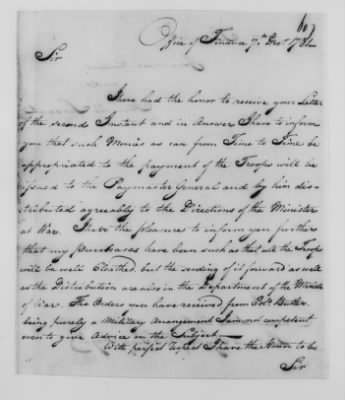 107
Office of Finance 7th Decr 1781
Sir
I have had the honor to receive your Letter
of the second Instant and in Answer I have to inform
you that such Monies as can from Time to Time be
appropriated to the payment of the Troops will be
issued to the Paymaster General and by him dis=
tributed agreeably to the Directions of the Minister
at War. I have the pleasure to inform you further
that my purchases have been such as that all the Troops
will be well Cloathed, but the sending of it forward as well
as the Distribution are also in the Department of the Minister
of War. The Orders you have received from Colo. Butler
being purely a Military Arrangement I am not competent
even to give Advice on the Subject —
With perfect respect I have the Honor to be
Sir